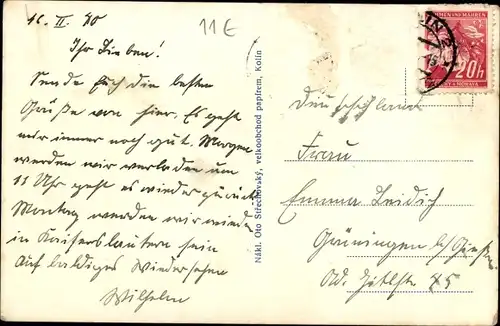 10. II. 40
11€
Ihr Lieben!
Sende Euch die besten
Grüße von hier. Es geht
mir immer noch gut. Morgen
werden wir verladen um
11 Uhr geht es wieder zurück
Montag werden wir wieder
in Kaiserslautern sein
Auf baldiges Wiedersehen
Wilhelm
Nákl. Oto Střechovský, velkoobchod papírem, Kolín
MEN UND MÄHREN
20h
MORAVA
Frau
Emma Leidich
Gröningen b/
Ad. Hitlerstr 75